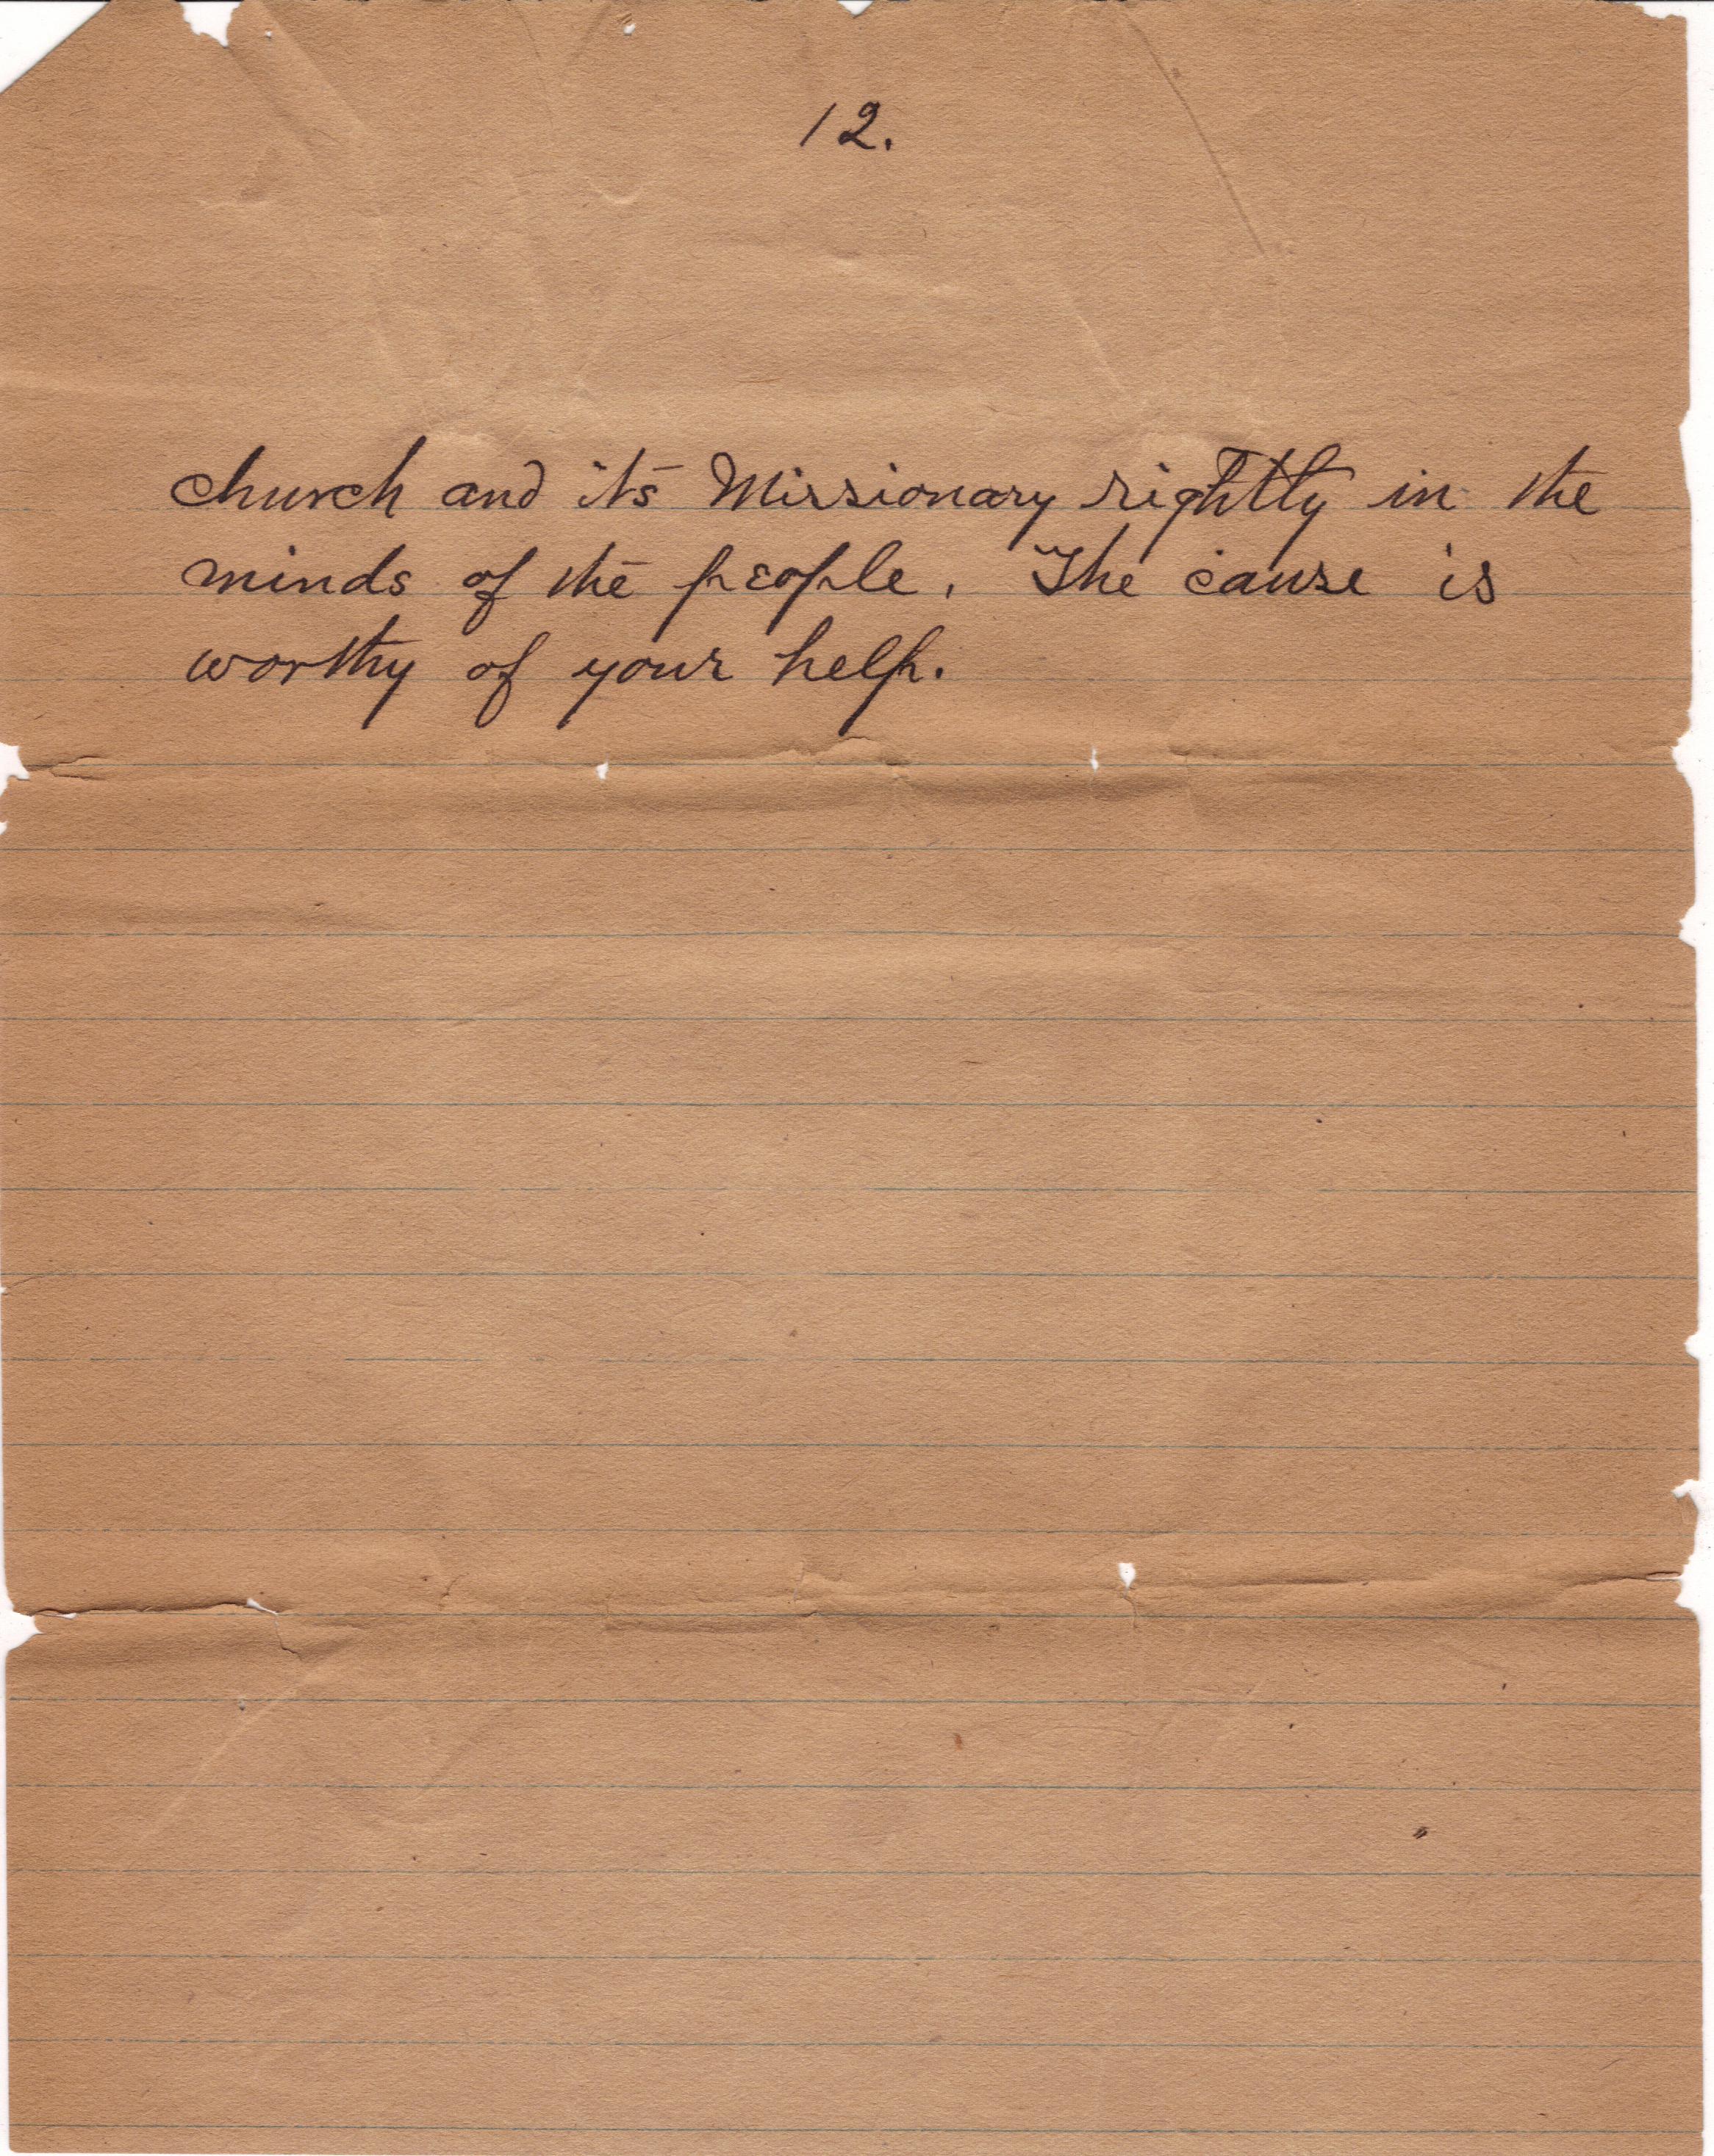 12.
church and its Missionary rightly in the
minds of the people. The cause is
worthy of your help.